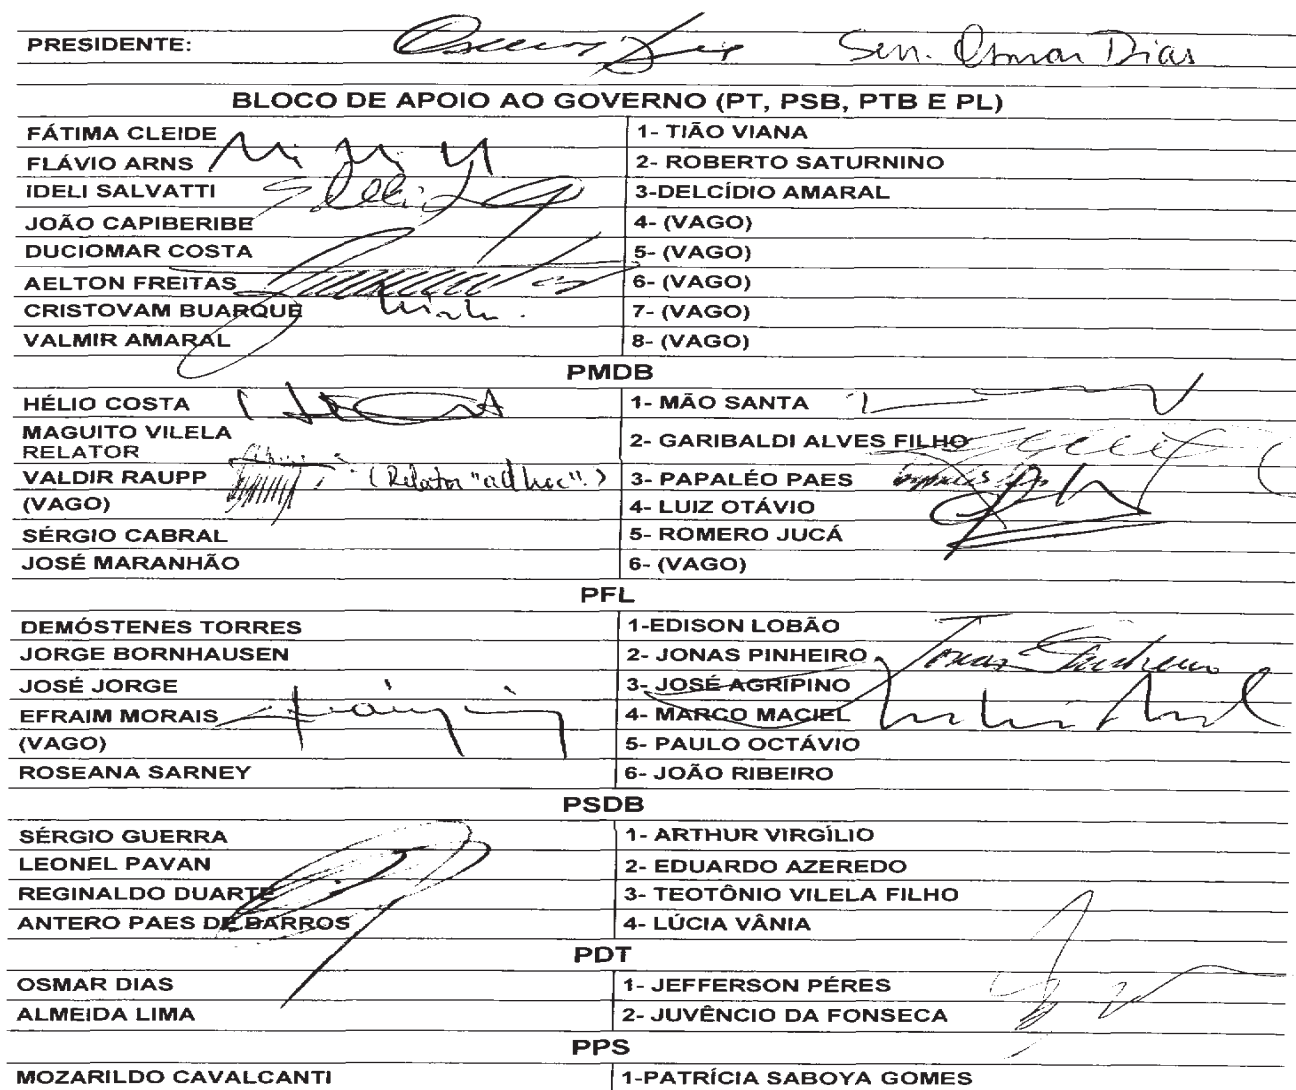 PRESIDENTE: Sen. Osmar Dias
BLOCO DE APOIO AO GOVERNO (PT, PSB, PTB E PL)
FÁTIMA CLEIDE 1- TIÃO VIANA
FLÁVIO ARNS 2- ROBERTO SATURNINO
IDELI SALVATTI 3-DELCÍDIO AMARAL
JOÃO CAPIBERIBE 4- (VAGO)
DUCIOMAR COSTA 5- (VAGO)
AELTON FREITAS 6- (VAGO)
CRISTOVAM BUARQUE 7- (VAGO)
VALMIR AMARAL 8- (VAGO)
PMDB
HÉLIO COSTA 1- MÃO SANTA
MAGUITO VILELA
RELATOR 2- GARIBALDI ALVES FILHO
VALDIR RAUPP (Relator "ad hoc".) 3- PAPALÉO PAES
(VAGO) 4- LUIZ OTÁVIO
SÉRGIO CABRAL 5- ROMERO JUCÁ
JOSÉ MARANHÃO 6- (VAGO)
PFL
DEMÓSTENES TORRES 1-EDISON LOBÃO
JORGE BORNHAUSEN 2- JONAS PINHEIRO Jonas Pinheiro
JOSÉ JORGE 3- JOSÉ AGRIPINO
EFRAIM MORAIS 4- MARCO MACIEL
(VAGO) 5- PAULO OCTÁVIO
ROSEANA SARNEY 6- JOÃO RIBEIRO
PSDB
SÉRGIO GUERRA 1- ARTHUR VIRGÍLIO
LEONEL PAVAN 2- EDUARDO AZEREDO
REGINALDO DUARTE 3- TEOTÔNIO VILELA FILHO
ANTERO PAES DE BARROS 4- LÚCIA VÂNIA
PDT
OSMAR DIAS 1- JEFFERSON PÉRES
ALMEIDA LIMA 2- JUVÊNCIO DA FONSECA
PPS
MOZARILDO CAVALCANTI 1-PATRÍCIA SABOYA GOMES